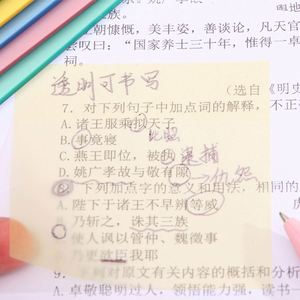 王朝慷慨，美丰姿，善谈论，凡天官
叹曰："国家养士三十年，惟得一卓
族。
（选自《明史
透明可书写
7. 对下列句子中加点词的解释，不正
A. 诸王服乘拟天子
B. 事竟寝
C. 燕王即位，被执 逮捕
D. 姚广孝故与敬有隙 仇怨
8. 下列加点字的意义和用法，相同的
A. 陛下于诸王不早辨等威
B. 乃斩之，诛其三族
C. 使人讽以管仲、魏徵事
D. 乃更欲臣我耶
9. 下列对原文有关内容的概括和分析
A. 卓敬聪明过人，领悟能力强，读书